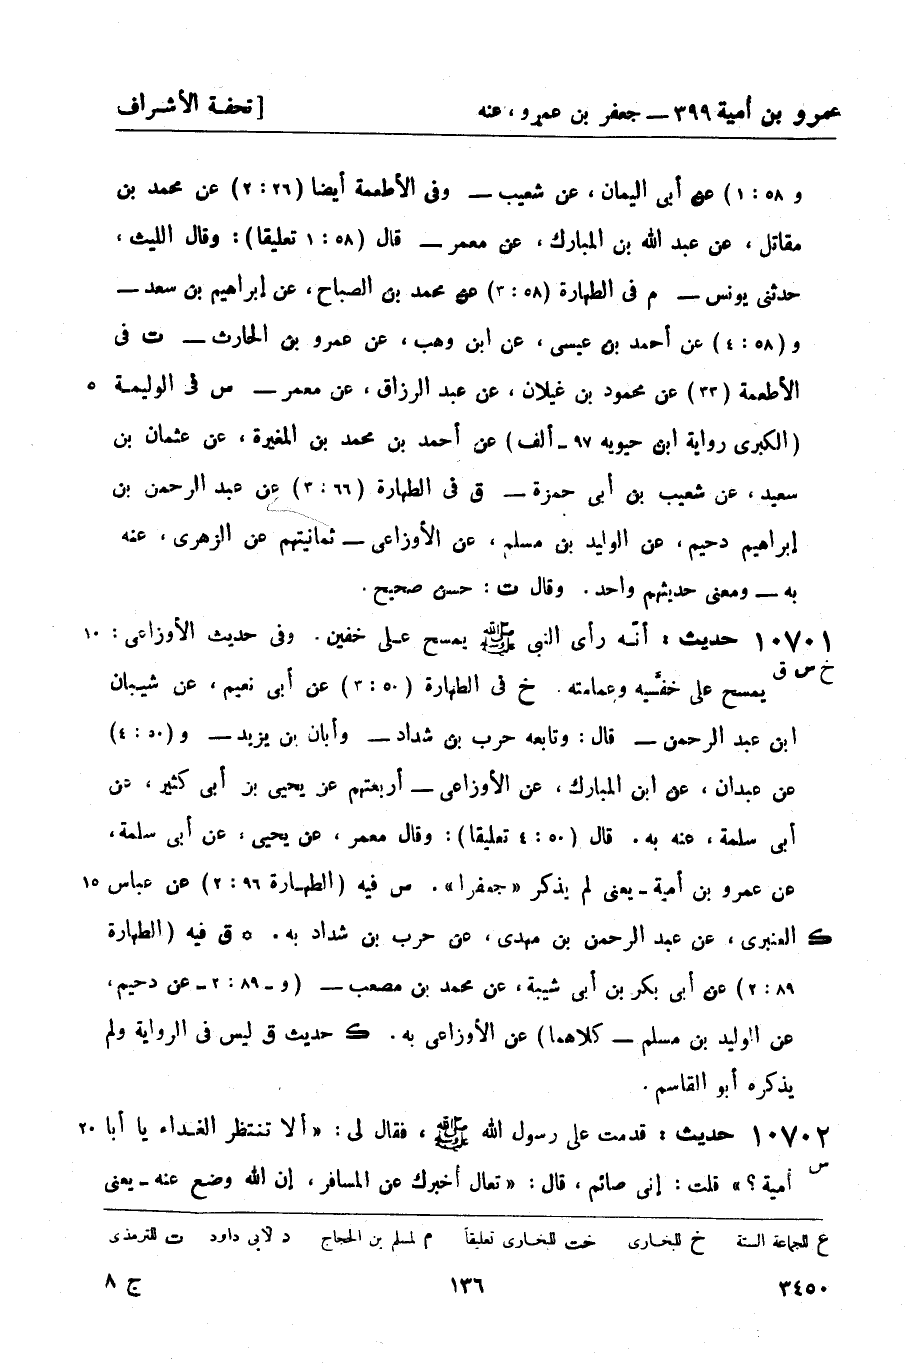 عمرو بن أمية ٣٩٩ ــ جعفر بن عمرو ، عنه [ تحفة الأشراف
و ٥٨ : ١ ) عن أبى اليمان ، عن شعيب ــ وفى الأطعمة أيضا (٢٦ : ٢) عن محمد بن
مقاتل ، عن عبد الله بن المبارك ، عن معمر ــ قال (٥٨ : ١ تعليقا) : وقال الليث ،
حدثنى يونس ــ م فى الطهارة (٥٨ : ٣) عن محمد بن الصباح ، عن إبراهيم بن سعد ــ
و (٥٨ : ٤) عن أحمد بن عيسى ، عن ابن وهب ، عن عمرو بن الحارث ــ ت فى
الأطعمة (٣٣) عن محمود بن غيلان ، عن عبد الرزاق ، عن معمر ــ س فى الوليمة ٥
(الكبرى رواية ابن حيويه ٩٧ ـ ألف) عن أحمد بن محمد بن المغيرة ، عن عثمان بن
سعيد ، عن شعيب بن أبى حمزة ــ ق فى الطهارة (٦٦ : ٣) عن عبد الرحمن بن
إبراهيم دحيم ، عن الوليد بن مسلم ، عن الأوزاعى ــ ثمانيتهم عن الزهرى ، عنه
به ــ ومعنى حديثهم واحد . وقال ت : حسن صحيح .
١٠٧٠١ حديث : أنّه رأى النبى ﷺ يمسح على خفين . وفى حديث الأوزاعى : ١٠
خ س ق يمسح على خفَّيه وعمامته . خ فى الطهارة (٥٠ : ٣) عن أبى نعيم ، عن شيبان
ابن عبد الرحمن ــ قال : وتابعه حرب بن شداد ــ وأبان بن يزيد ــ و (٥٠ : ٤)
عن عبدان ، عن ابن المبارك ، عن الأوزاعى ــ أربعتهم عن يحيى بن أبى كثير ، عن
أبى سلمة ، عنه به . قال (٥٠ : ٤ تعليقا) : وقال معمر ، عن يحيى ، عن أبى سلمة ،
عن عمرو بن أمية ـ يعنى لم يذكر «جعفرا» . س فيه (الطهارة ٩٦ : ٢) عن عباس ١٥
ك العنبرى ، عن عبد الرحمن بن مهدى ، عن حرب بن شداد به . * ق فيه (الطهارة
٨٩ : ٢) عن أبى بكر بن أبى شيبة ، عن محمد بن مصعب ــ (و ـ ٨٩ : ٢ ـ عن دحيم ،
عن الوليد بن مسلم ــ كلاهما) عن الأوزاعى به . ك حديث ق ليس فى الرواية ولم
يذكره أبو القاسم .
١٠٧٠٢ حديث : قدمت على رسول الله ﷺ ، فقال لى : «ألا تنتظر الغداء يا أبا ٢٠
س أمية ؟» قلت : إنى صائم ، قال : «تعال أخبرك عن المسافر ، إن الله وضع عنه ـ يعنى
ع للجماعة الستة خ للبخارى خت للبخارى تعليقاً م لمسلم بن الحجاج د لأبى داود ت للترمذى
٣٤٥٠ ١٣٦ ج ٨